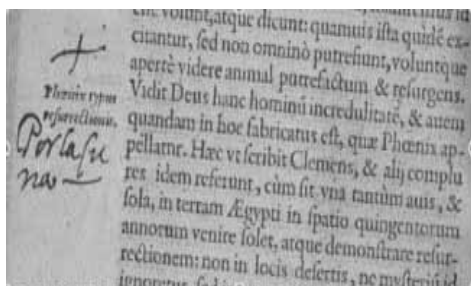 Phœnix typus
resurrectionis.
Por la su
na
volunt, atque dicunt: quamuis ista quidē ex-
citantur, sed non omninò putrefiunt, voluntque
apertè videre animal putrefactum & resurgens.
Vidit Deus hanc hominū incredulitatē, & auem
quandam in hoc fabricatus est, quæ Phœnix ap-
pellatur. Hæc vt scribit Clemens, & alij complu
res idem referunt, cùm sit vna tantùm auis, &
sola, in terram Ægypti in spatio quingentorum
annorum venire solet, atque demonstrare resur-
rectionem: non in locis desertis, ne mysteriū id
ignoretur, sed